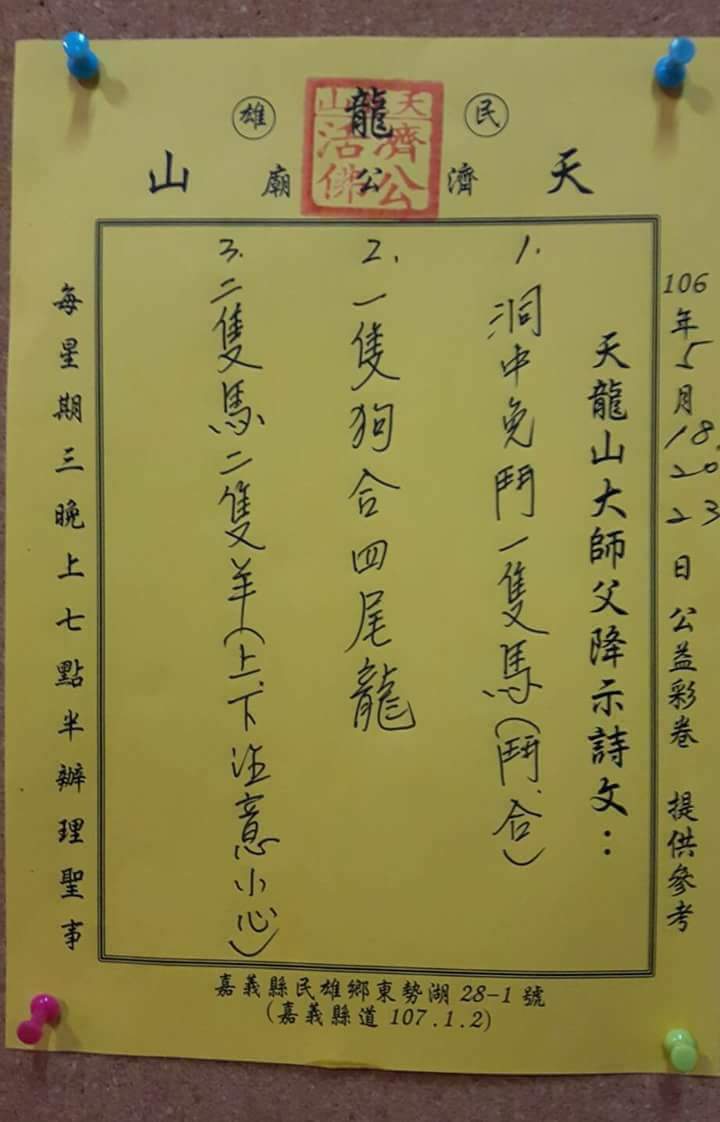 民雄
天龍山
濟公廟
天山
濟公
活佛
106年5月18.20 23日公益彩卷 提供參考
天龍山大師父降示詩文：
1. 洞中免鬥一隻馬(鬥、合)
2. 一隻狗合四尾龍
3. 二隻馬二隻羊(上、下注意小心)
每星期三晚上七點半辦理聖事
嘉義縣民雄鄉東勢湖 28-1 號
(嘉義縣道 107.1.2)